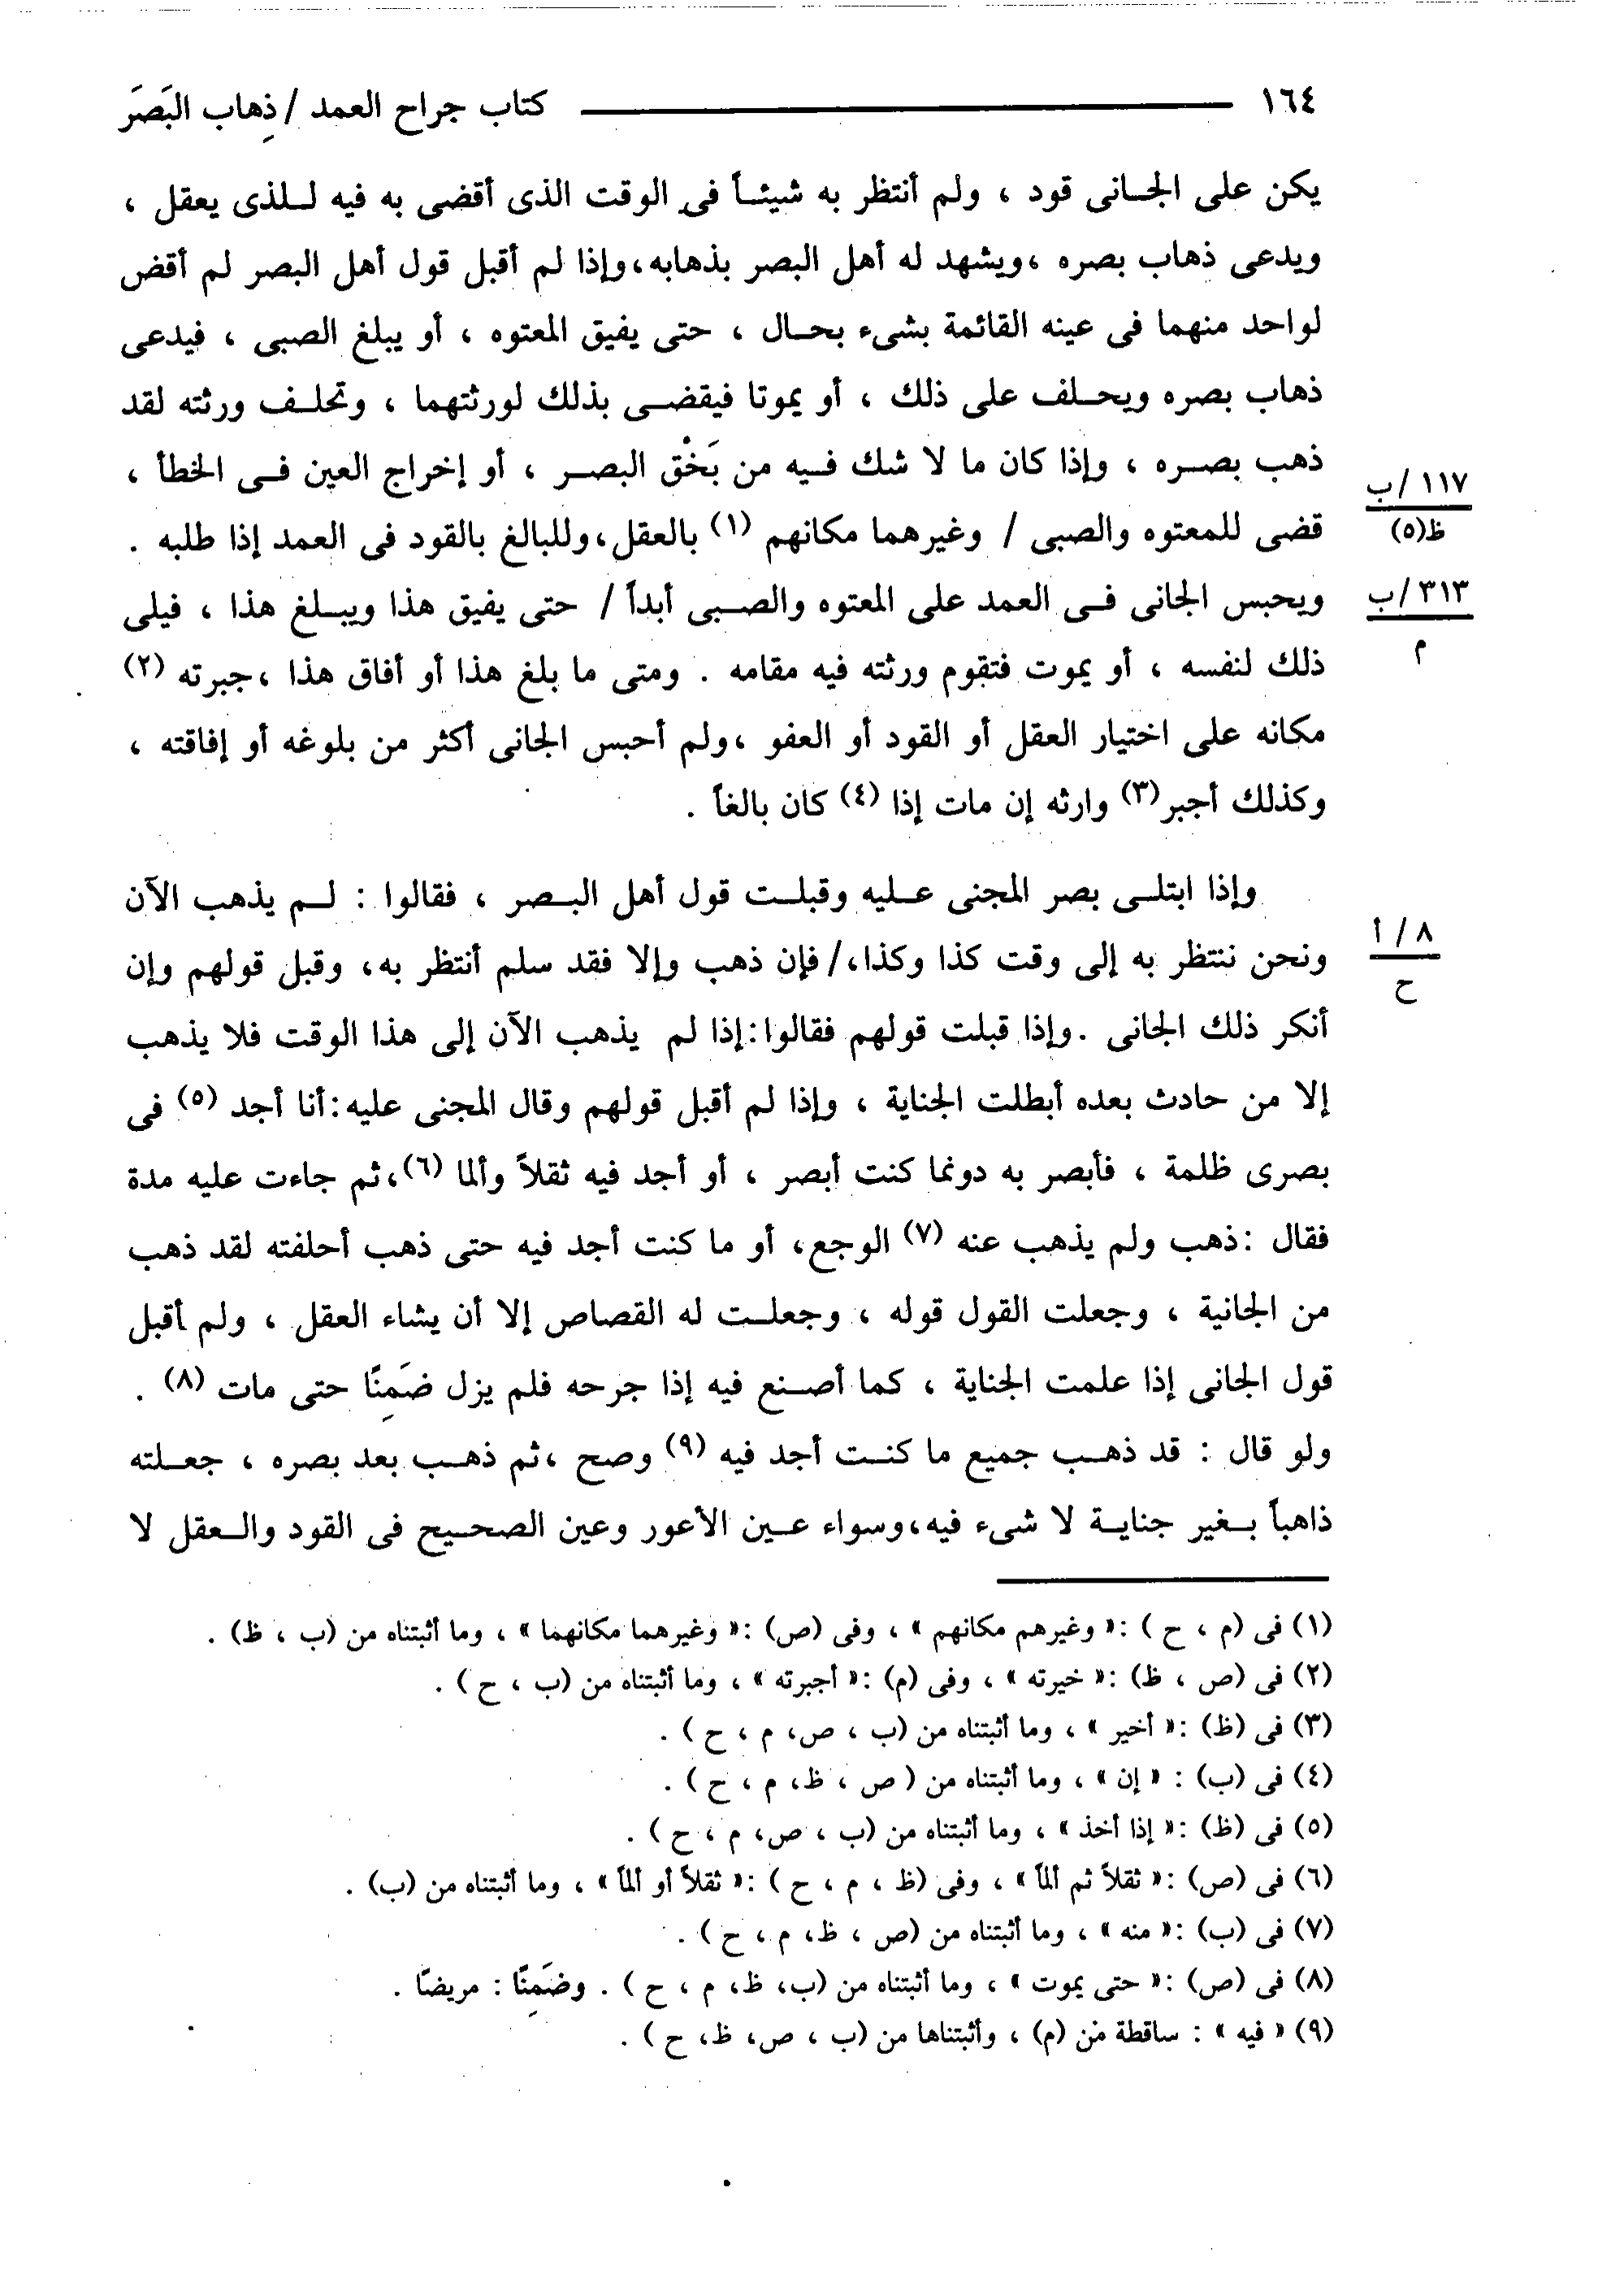 ١٦٤ كتاب جراح العمد / ذِهاب البَصَرَ
يكن على الجـانى قود ، ولم أنتظر به شيئـاً فى الوقت الذى أقضى به فيه لـلذى يعقل ،
ويدعى ذهاب بصره ،ويشهد له أهل البصر بذهابه،وإذا لم أقبل قول أهل البصر لم أقض
لواحد منهما فى عينه القائمة بشىء بحـال ، حتى يفيق المعتوه ، أو يبلغ الصبى ، فيدعى
ذهاب بصره ويحـلف على ذلك ، أو يموتا فيقضـى بذلك لورثتهما ، وتحلـف ورثته لقد
ذهب بصـره ، وإذا كان ما لا شك فـيه من بَخْق البصـر ، أو إخراج العين فـى الخطأ ،
١١٧ /ب
ظ(٥)
قضى للمعتوه والصبى / وغيرهما مكانهم (١) بالعقل،وللبالغ بالقود فى العمد إذا طلبه .
٣١٣ /ب
م
ويحبس الجانى فـى العمد على المعتوه والصـبى أبداً / حتى يفيق هذا ويبـلغ هذا ، فيلى
ذلك لنفسه ، أو يموت فتقوم ورثته فيه مقامه . ومتى ما بلغ هذا أو أفاق هذا ،جبرته (٢)
مكانه على اختيار العقل أو القود أو العفو ،ولم أحبس الجانى أكثر من بلوغه أو إفاقته ،
وكذلك أجبر(٣) وارثه إن مات إذا (٤) كان بالغاً .
وإذا ابتلـى بصر المجنى عـليه وقبلـت قول أهل البـصر ، فقالوا : لـم يذهب الآن
٨ / أ
ح
ونحن ننتظر به إلى وقت كذا وكذا،/ فإن ذهب وإلا فقد سلم أنتظر به، وقبل قولهم وإن
أنكر ذلك الجانى .وإذا قبلت قولهم فقالوا:إذا لم يذهب الآن إلى هذا الوقت فلا يذهب
إلا من حادث بعده أبطلت الجناية ، وإذا لم أقبل قولهم وقال المجنى عليه:أنا أجد (٥) فى
بصرى ظلمة ، فأبصر به دونما كنت أبصر ، أو أجد فيه ثقلاً وألما (٦)،ثم جاءت عليه مدة
فقال :ذهب ولم يذهب عنه (٧) الوجع، أو ما كنت أجد فيه حتى ذهب أحلفته لقد ذهب
من الجانية ، وجعلت القول قوله ، وجعلـت له القصاص إلا أن يشاء العقل ، ولم أقبل
قول الجانى إذا علمت الجناية ، كما أصـنع فيه إذا جرحه فلم يزل ضَمِنًا حتى مات (٨) .
ولو قال : قد ذهـب جميع ما كنـت أجد فيه (٩) وصح ،ثم ذهـب بعد بصره ، جعـلته
ذاهباً بـغير جنايـة لا شىء فيه،وسواء عـين الأعور وعين الصحـيح فى القود والـعقل لا
(١) فى (م ، ح ) :« وغيرهم مكانهم » ، وفى (ص) :« وغيرهما مكانهما » ، وما أثبتناه من (ب ، ظ) .
(٢) فى (ص ، ظ) :« خيرته » ، وفى (م) :« أجبرته » ، وما أثبتناه من (ب ، ح ) .
(٣) فى (ظ) :« أخير » ، وما أثبتناه من (ب ، ص، م ، ح ) .
(٤) فى (ب) : « إن » ، وما أثبتناه من ( ص ، ظ، م ، ح ) .
(٥) فى (ظ) :« إذا أخذ » ، وما أثبتناه من (ب ، ص، م ، ح ) .
(٦) فى (ص) :« ثقلاً ثم ألماً » ، وفى (ظ ، م ، ح ) :« ثقلاً أو ألماً » ، وما أثبتناه من (ب) .
(٧) فى (ب) :« منه » ، وما أثبتناه من (ص ، ظ، م ، ح ) .
(٨) فى (ص) :« حتى يموت » ، وما أثبتناه من (ب، ظ، م ، ح ) . وضَمِنًا : مريضًا .
(٩) « فيه » : ساقطة من (م) ، وأثبتناها من (ب ، ص، ظ، ح ) .